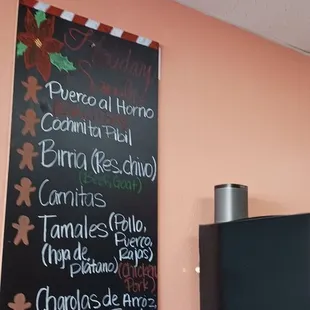 Holiday
Puerco al Horno
Cochinita Pibil
Birria (Res, chivo)
(Beef, Goat)
Carnitas
Tamales (Pollo,
Puerco,
(hoja de Rajas)
platano) (Chicken
Pork)
Charolas de Arroz,